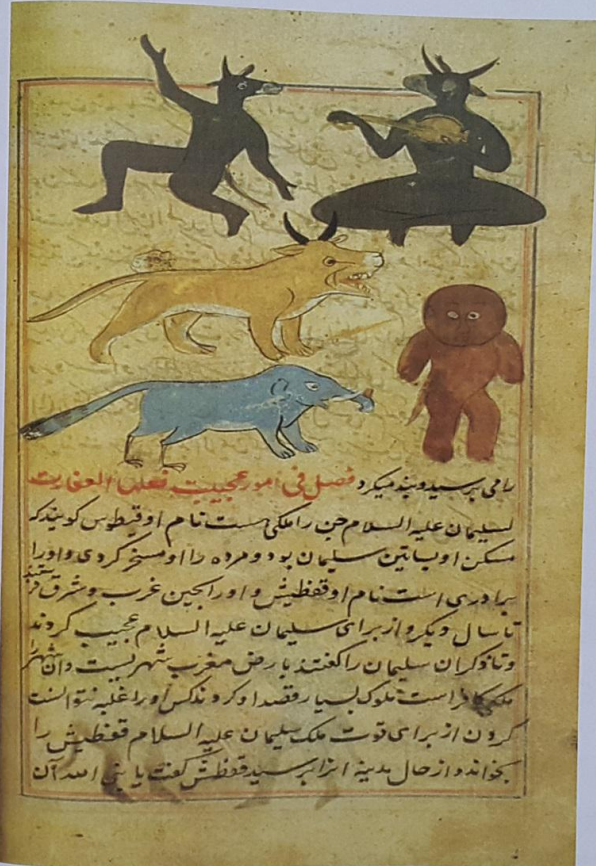 را می پرسید و بند میکرد فصل فی امور عجیبت فعلها العفاریت
لسلیمان علیه السلام جن را ملکی ست نام او قیطوس کویند که
مسکن او بساتین سلیمان بود و مرده را او مسخر کردی و او را
برادری است نام او قفطیش و او را بجین غرب و شرق
تا سال دیکر و از برای سلیمان علیه السلام عجیب کردند
و تا ذکران سلیمان را کفتند بارض مغرب شهریست و آن شهر را
ملکی کافر است ملوک بسیار قصد او کردند کس او را غلبه نتوانست
کردن از برای قوت ملک سلیمان علیه السلام قفطیش را
بخواند و از حال مدینه او را پرسید قفطش کفت یا نبی الله آن